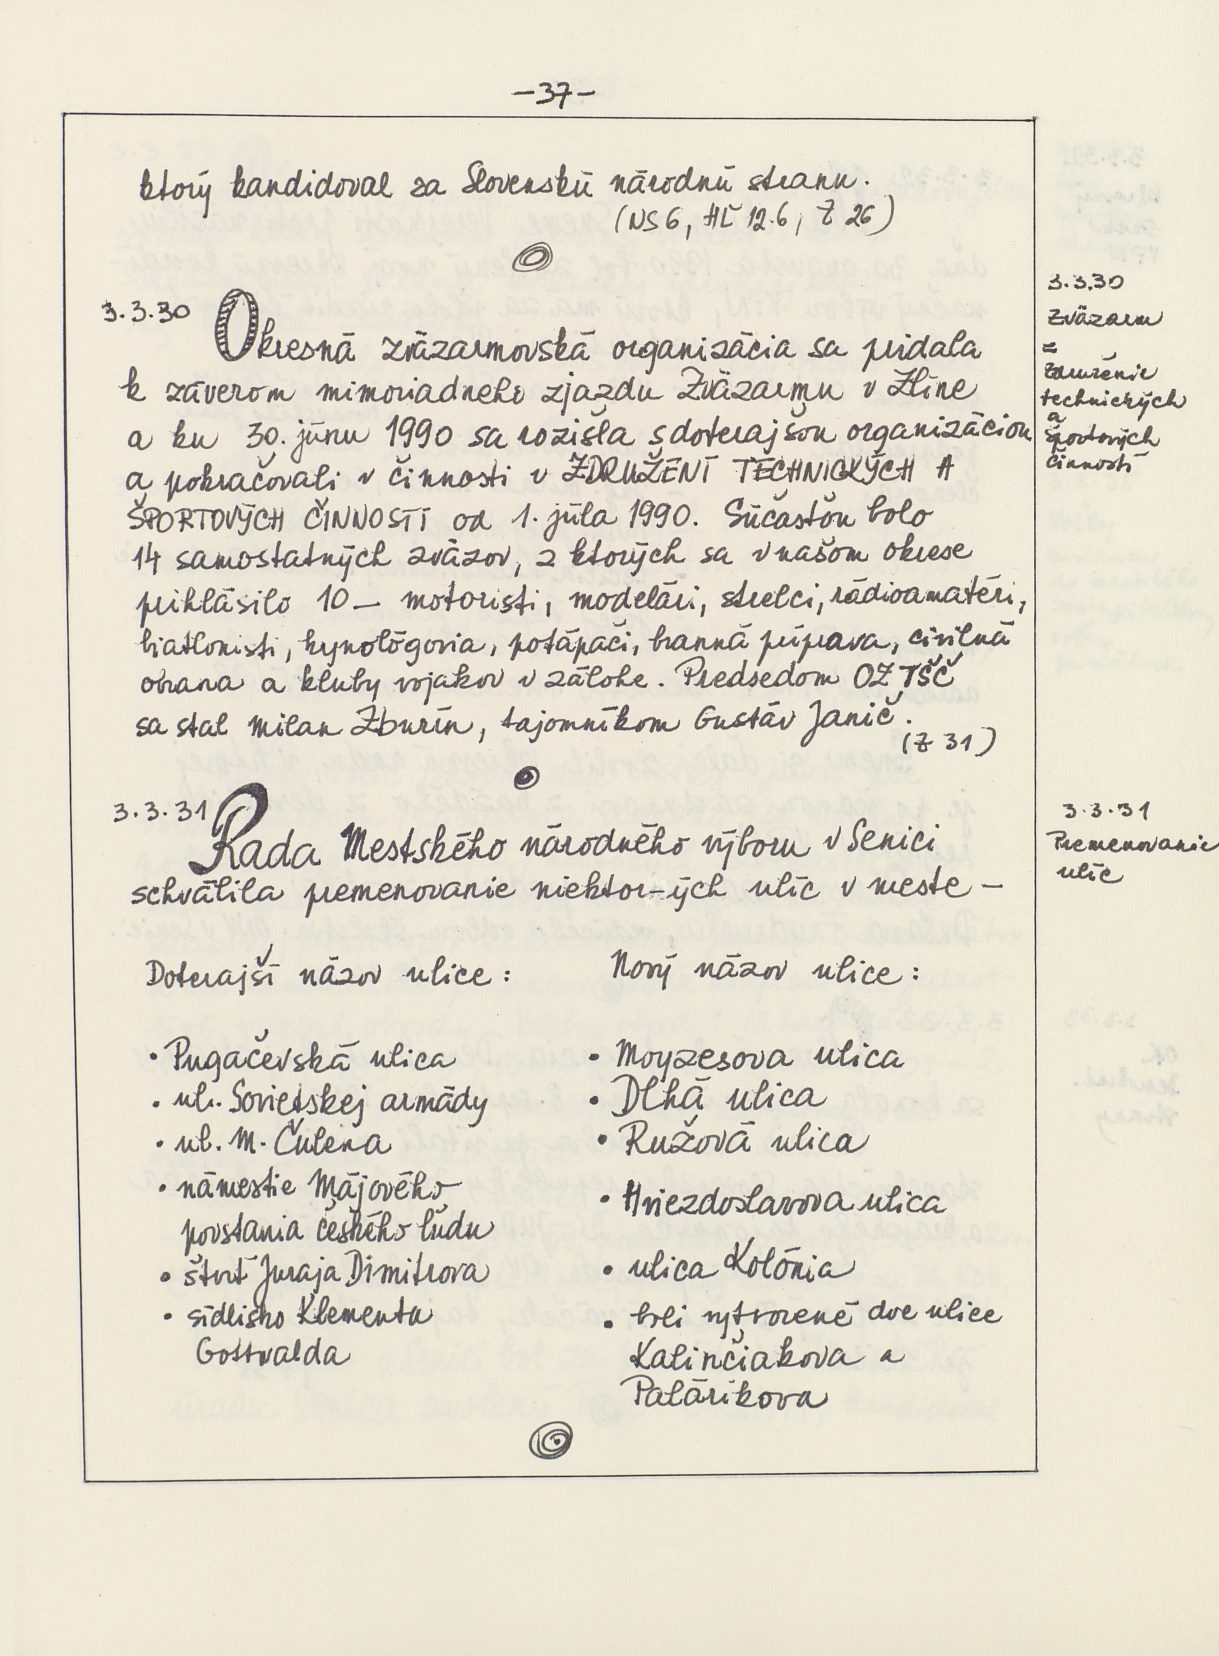 -37-
ktorý kandidoval za Slovenskú národnú stranu.
(NS 6, HĽ 12.6, Z 26)
3.3.30
Okresná zväzarmovská organizácia sa pridala
k záverom mimoriadneho zjazdu Zväzarmu v Zlíne
a ku 30. júnu 1990 sa rozišla s doterajšou organizáciou
a pokračovali v činnosti v ZDRUŽENÍ TECHNICKÝCH A
ŠPORTOVÝCH ČINNOSTÍ od 1. júla 1990. Súčasťou bolo
14 samostatných zväzov, z ktorých sa v našom okrese
prihlásilo 10 – motoristi, modelári, strelci, rádioamatéri,
biatlonisti, kynológovia, potápači, branná príprava, civilná
obrana a kluby vojakov v zálohe. Predsedom OZ TŠČ
sa stal Milan Zburín, tajomníkom Gustáv Janič.
(Z 31)
3.3.30
Zväzarm
=
Združenie
technických
a
športových
činností
3.3.31
Rada Mestského národného výboru v Senici
schválila premenovanie niektor-ých ulíc v meste –
3.3.31
Premenovanie
ulíc
Doterajší názov ulice: Nový názov ulice:
• Pugačevská ulica • Moyzesova ulica
• ul. Sovietskej armády • Dlhá ulica
• ul. M. Čulena • Ružová ulica
• námestie Májového
povstania českého ľudu • Hviezdoslavova ulica
• štvrť Juraja Dimitrova • ulica Kolónia
• sídlisko Klementa • boli vytvorené dve ulice
Gottwalda Kalinčiakova a
Palárikova